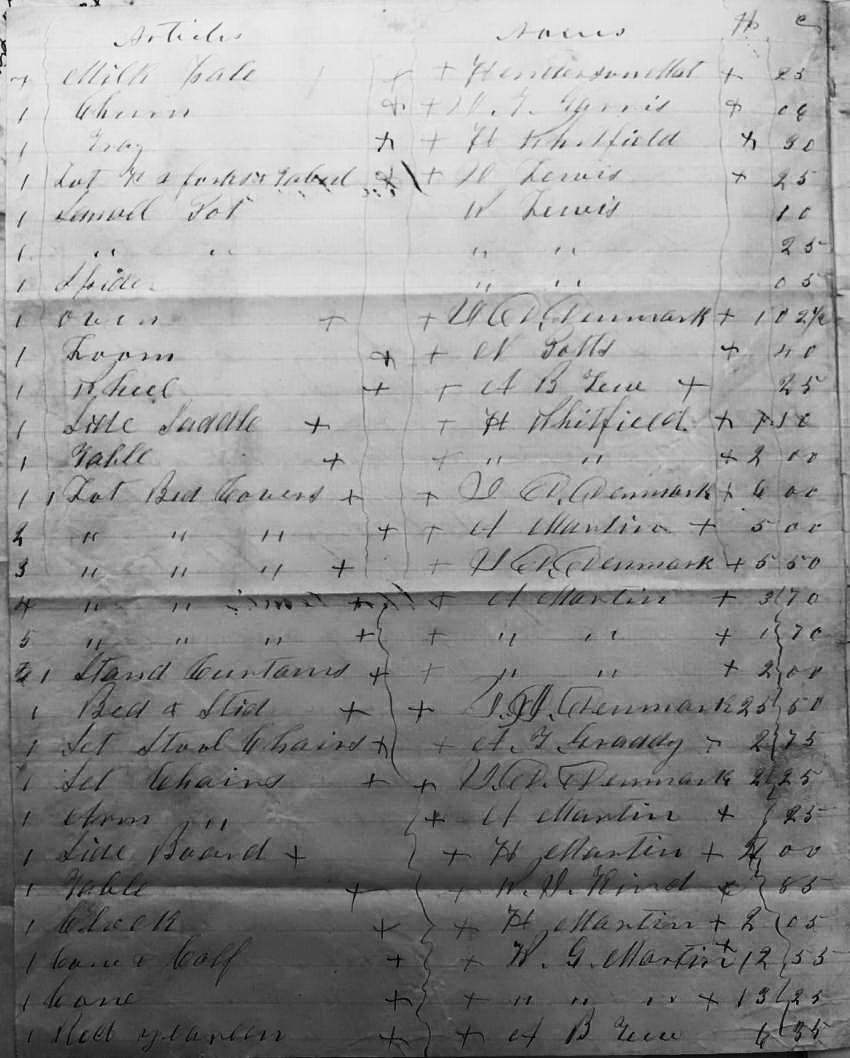 Articles Names $ c
1 Milk Pale + + Henderson Mat + 25
1 Churn + + + 06
1 Tray + + H Whitfield + 30
1 Lot K & forks & + + W Lewis + 25
1 Pot W Lewis 10
1 " " " " 25
1 Spider " " 05
1 Oven + + Denmark + 1 02½
1 Loom + + N Potts + 40
1 Wheel + + A B + 25
1 Side Saddle + + H Whitfield + 10
1 Table + + " " + 2 00
1 1 Lot Bed Covers + + Denmark + 6 00
2 " " " + + A Martin + 5 00
3 " " " + + Denmark + 5 50
4 " " + + A Martin + 3 70
5 " " " + + " " + 1 70
1 Stand Curtains + + " " + 2 00
1 Bed & Stid + + Denmark 25 50
1 Set Stool Chairs + + A. T Graddy + 2 75
1 Set Chairs + + Denmark 2 25
1 Arm " + A Martin + 25
1 Side Board + + H Martin + 4 00
1 Table + + + 65
1 Clock + + H Martin + 2 05
1 Cow & Calf + + W. G. Martin + 12 55
1 Cow + + " " " + 13 25
1 Red yearlen + + A B 6 35